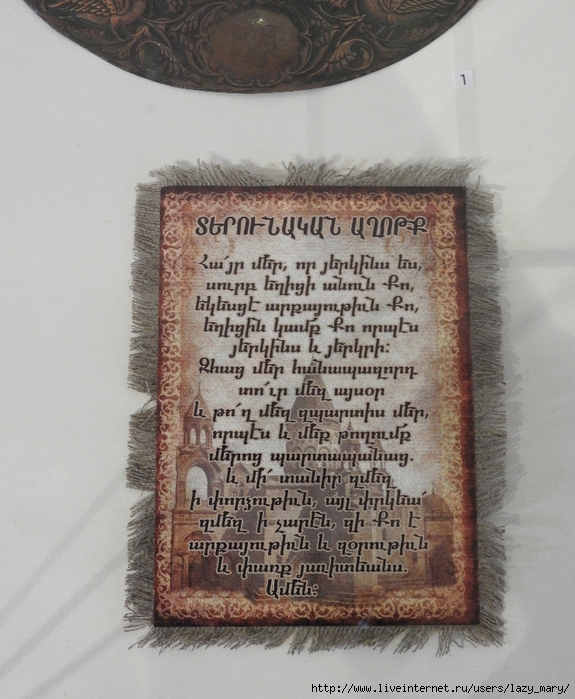 1
ՏԵՐՈՒՆԱԿԱՆ ԱՂՈԹՔ
Հա՛յր մեր, որ յերկինս ես,
սուրբ եղիցի անուն Քո,
եկեսցէ արքայութիւն Քո,
եղիցին կամք Քո որպէս
յերկինս և յերկրի:
Զհաց մեր հանապազորդ
տո՛ւր մեզ այսօր
և թո՛ղ մեզ զպարտիս մեր,
որպէս և մեք թողումք
մերոց պարտապանաց.
և մի՛ տանիր զմեզ
ի փորձութիւն, այլ փրկեա՛
զմեզ ի չարէն, զի Քո է
արքայութիւն և զօրութիւն
և փառք յաւիտեանս.
Ամէն:
http://www.liveinternet.ru/users/lazy_mary/